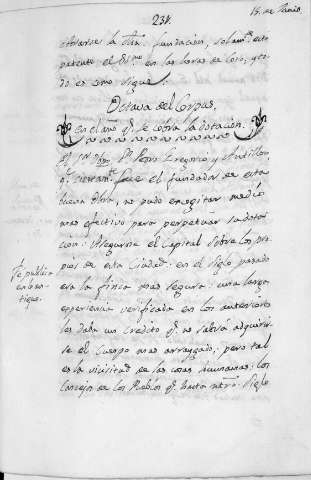 231.
15. de Junio.
patente el D.mo en las horas de Coro, y to-
do es como sigue.
Octava del Corpus,
en el año q.e se cobra la dotacion.
El S.r D.n Pedro Gregorio y Antillon,
q.e fue el fundador de esta
buena Obra, no pudo excogitar medio
mas efectivo para perpetuar la dota-
cion. Asegurar el Capital sobre los Pro-
pios de esta Ciudad: en el Siglo pasado
era la finca mas segura: una larga
experiencia verificada en los anteriores
les daba un credito q.e no sabia adquirir-
se el Cuerpo mas arreglado; pero tal
es la vicisitud de las cosas humanas: los
Concejos de los Pueblos q.e hasta ntro. Siglo